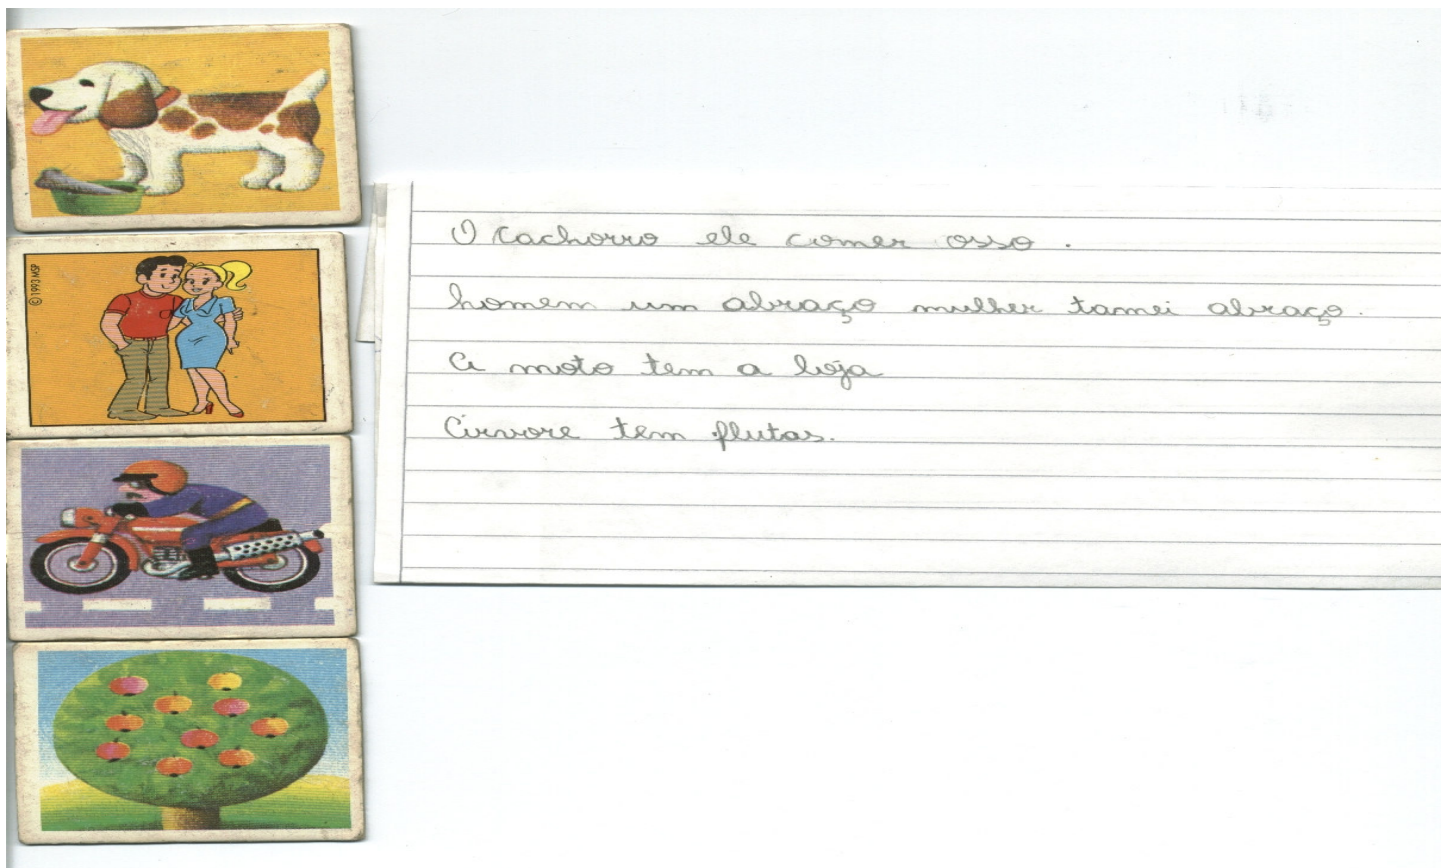 © 1993 MSP
O cachorro ele comer osso.
homem um abraço mulher tamei abraço.
A moto tem a loja
Arvore tem flutas.